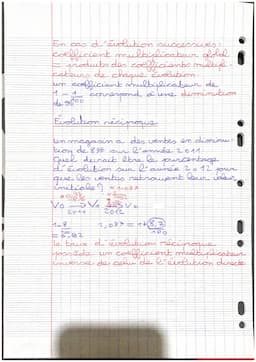 En cas d'évolution successives:
coefficient multiplicateur global
= produits des coefficients multipli-
cateurs de chaque évolution
un coefficient multiplicateur de
1 - 1/100 correspond d'une diminution
de
Évolution réciproque
Un magasin a des ventes en diminu-
tion de 8% sur l'année 2011
Quel devrait être le pourcentage
d'évolution sur l'année 2012 pour
que les ventes retrouvent leur valeur
initiale?
V0 → V1 → V0
2011 2012
1-8/100 1,087 = 1+8,7/100
= 0,92
Le taux d'évolution réciproque
possède un coefficient multiplicateur
inverse de celui de l'évolution directe